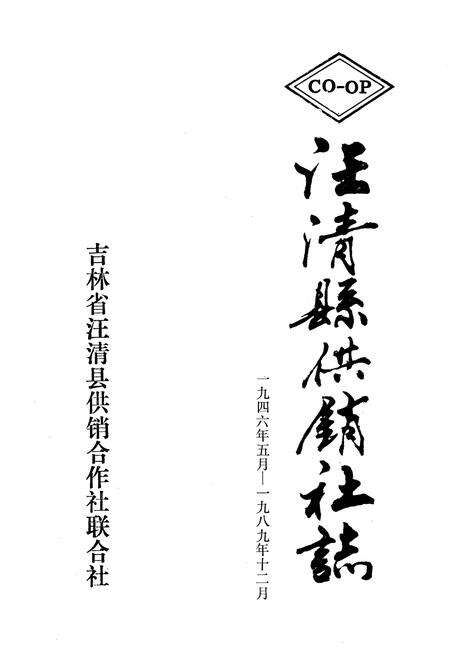 CO-OP
汪清縣供銷社誌
一九四六年五月—一九八九年十二月
吉林省汪清县供销合作社联合社